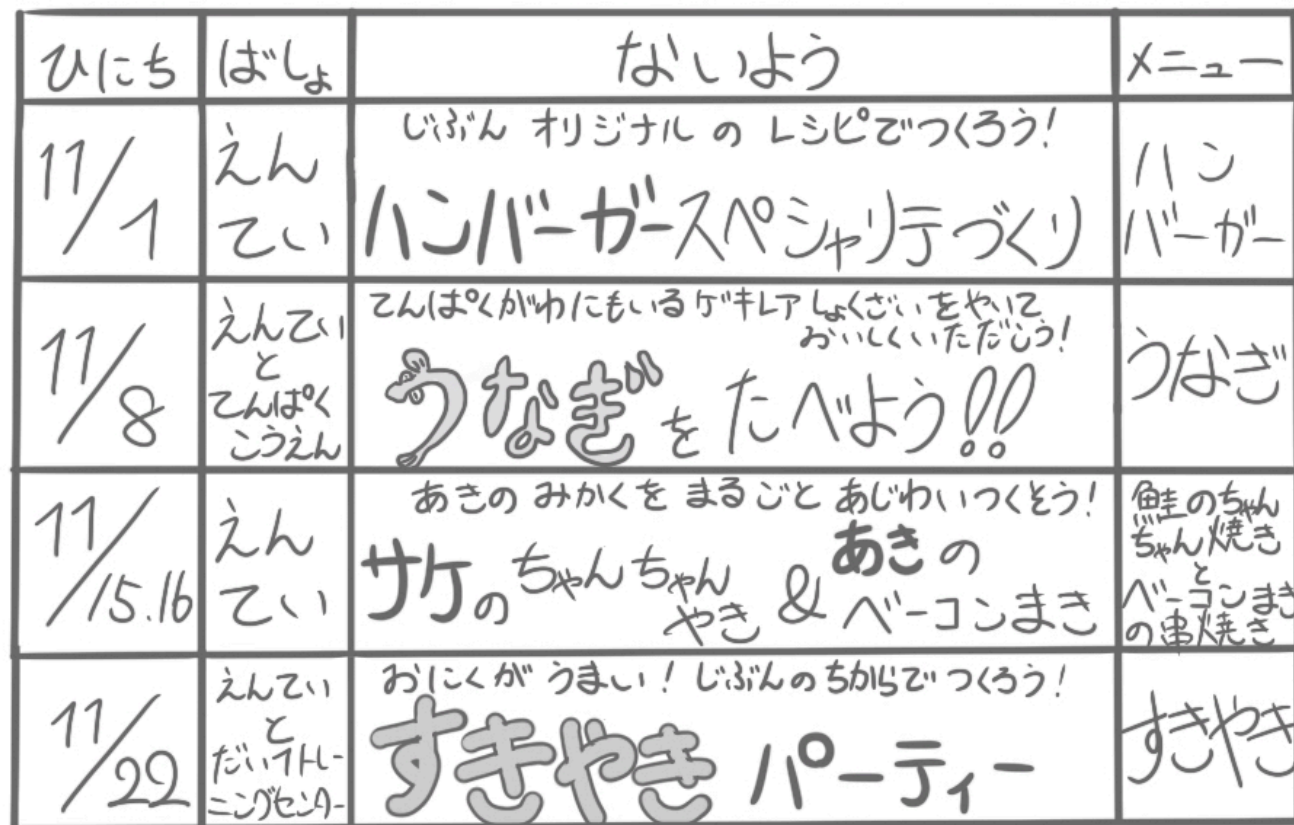 ひにち ばしょ ないよう メニュー
11/1
えん
てい
じぶん オリジナル の レシピでつくろう!
ハンバーガースペシャリテづくり
ハン
バーガー
11/8
えんてい
と
てんぱく
こうえん
てんぱくがわにもいるゲキレアしょくざいをやいて
おいしくいただこう!
うなぎをたべよう!!
うなぎ
11/15.16
えん
てい
あきの みかくを まるごと あじわいつくそう!
サケのちゃんちゃん
やき & あきの
ベーコンまき
鮭のちゃん
ちゃん焼き
と
ベーコンまき
の串焼き
11/22
えんてい
と
だい1トレー
ニングセンター
おにくが うまい! じぶんのちからで つくろう!
すきやき パーティー
すきやき